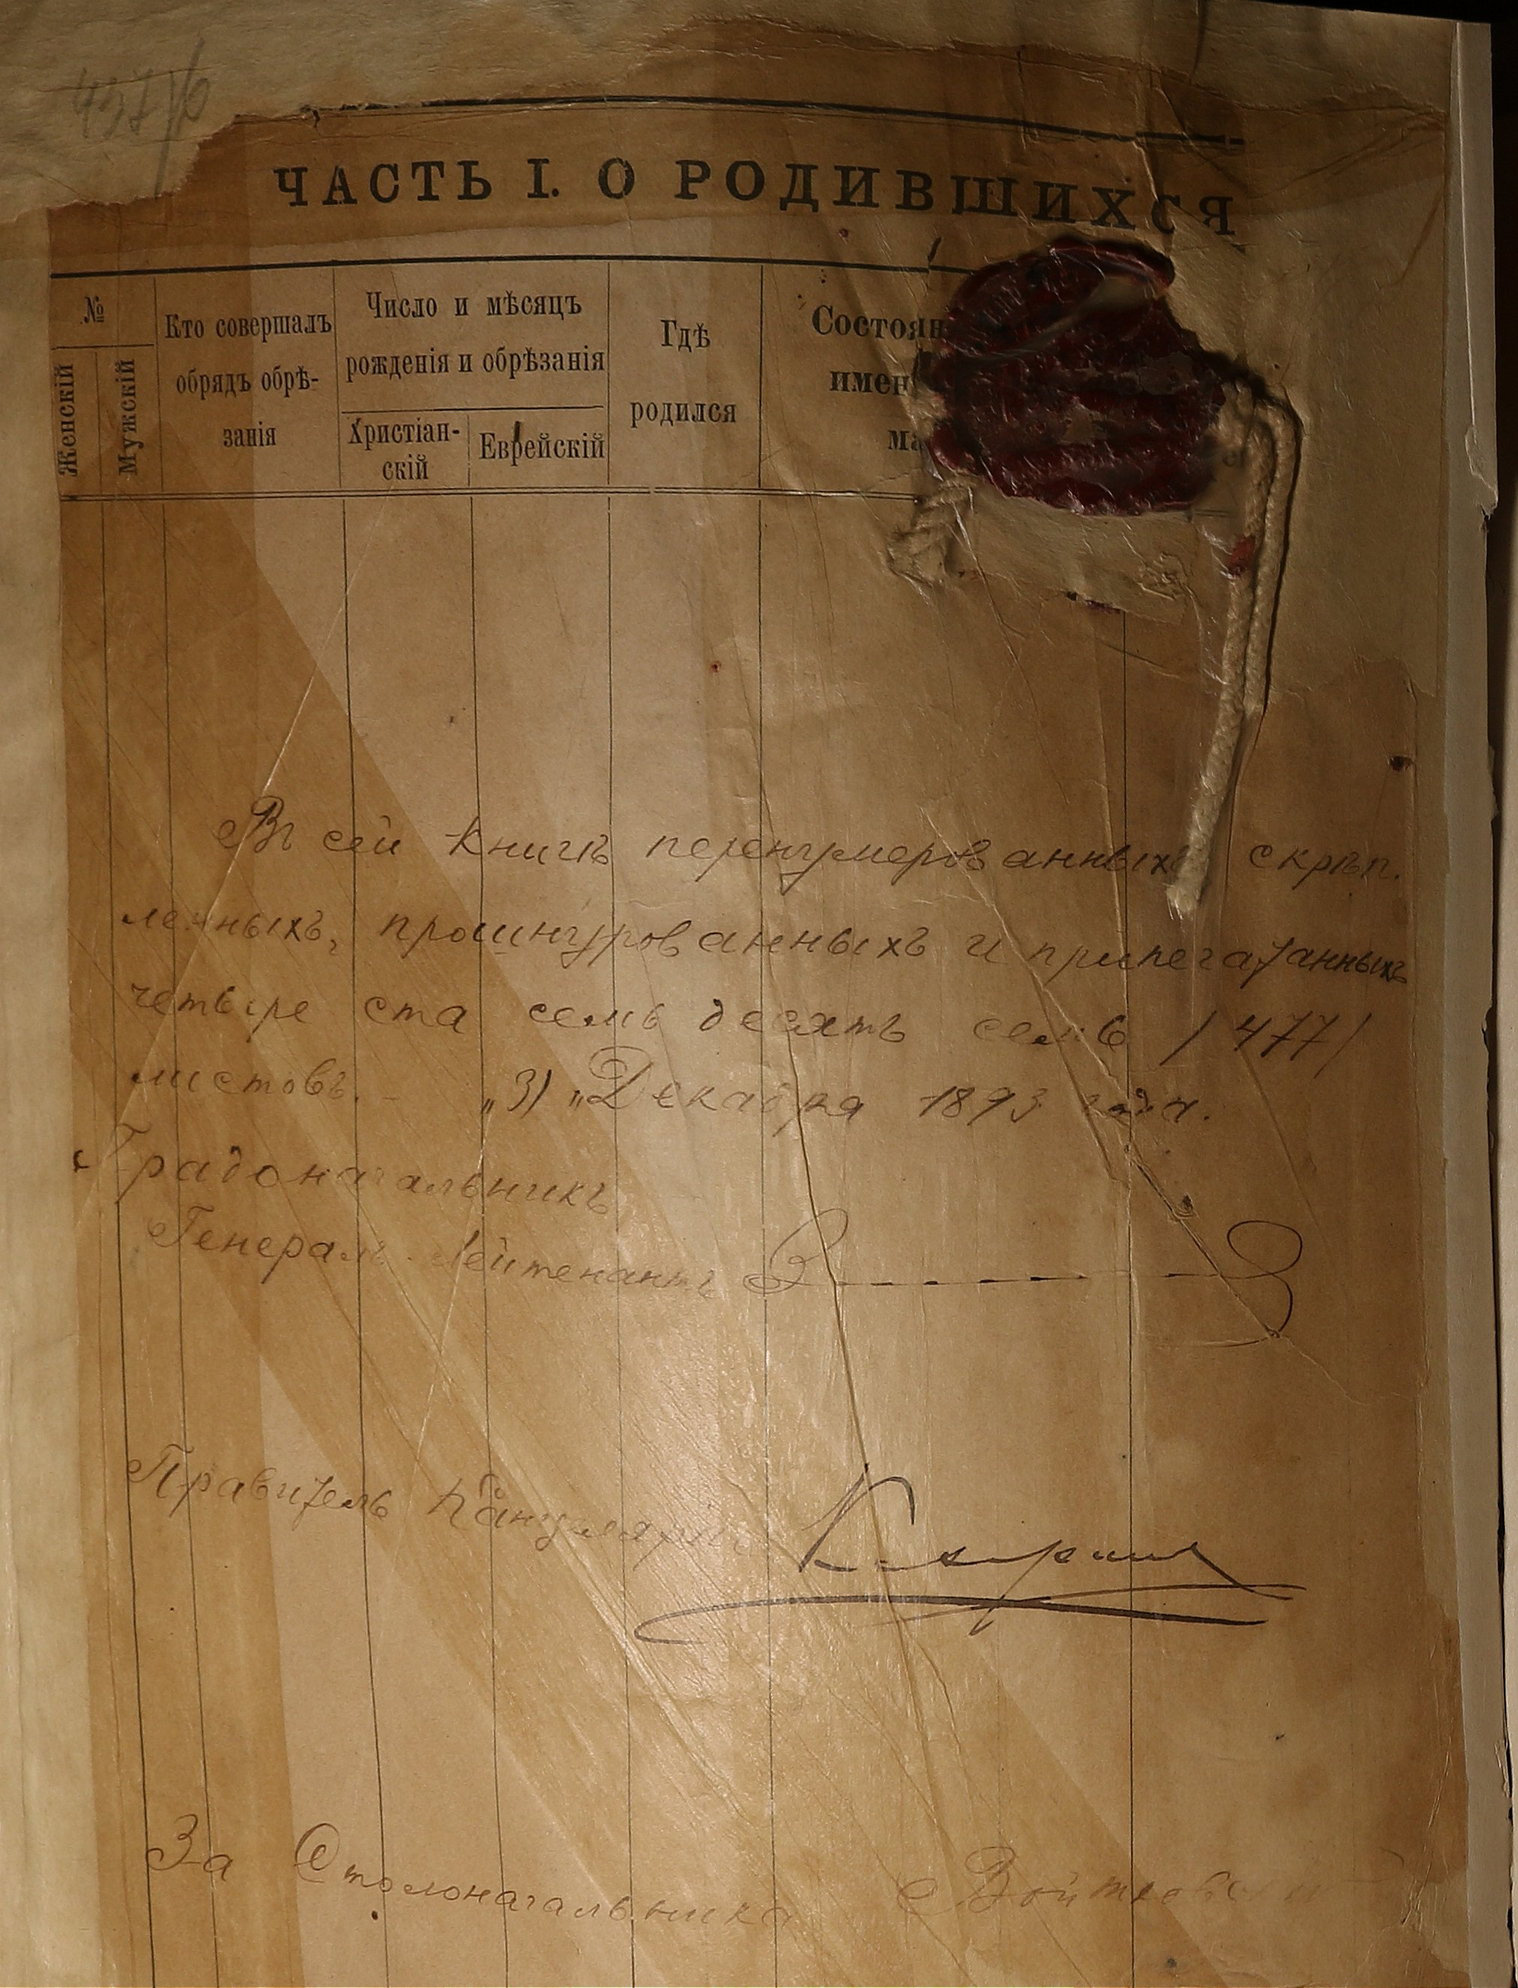 ЧАСТЬ I. О РОДИВШИХСЯ
№
Женскій
Мужскій
Кто совершалъ
обрядъ обрѣ-
занія
Число и мѣсяцъ
рожденія и обрѣзанія
Христіан-
скій
Еврейскій
Гдѣ
родился
Состоян
имен
ма
Въ сей книгѣ перенумерованныхъ скрѣп.
ленныхъ, прошнурованныхъ и припечатанныхъ
четыре ста семь десятъ семь /477/
листовъ. - „31„ Декабря 1893 года.
Градоначальникъ
Генералъ-Лейтенантъ З
Правитель Канцеляріи
За Столоначальника Войтковскій